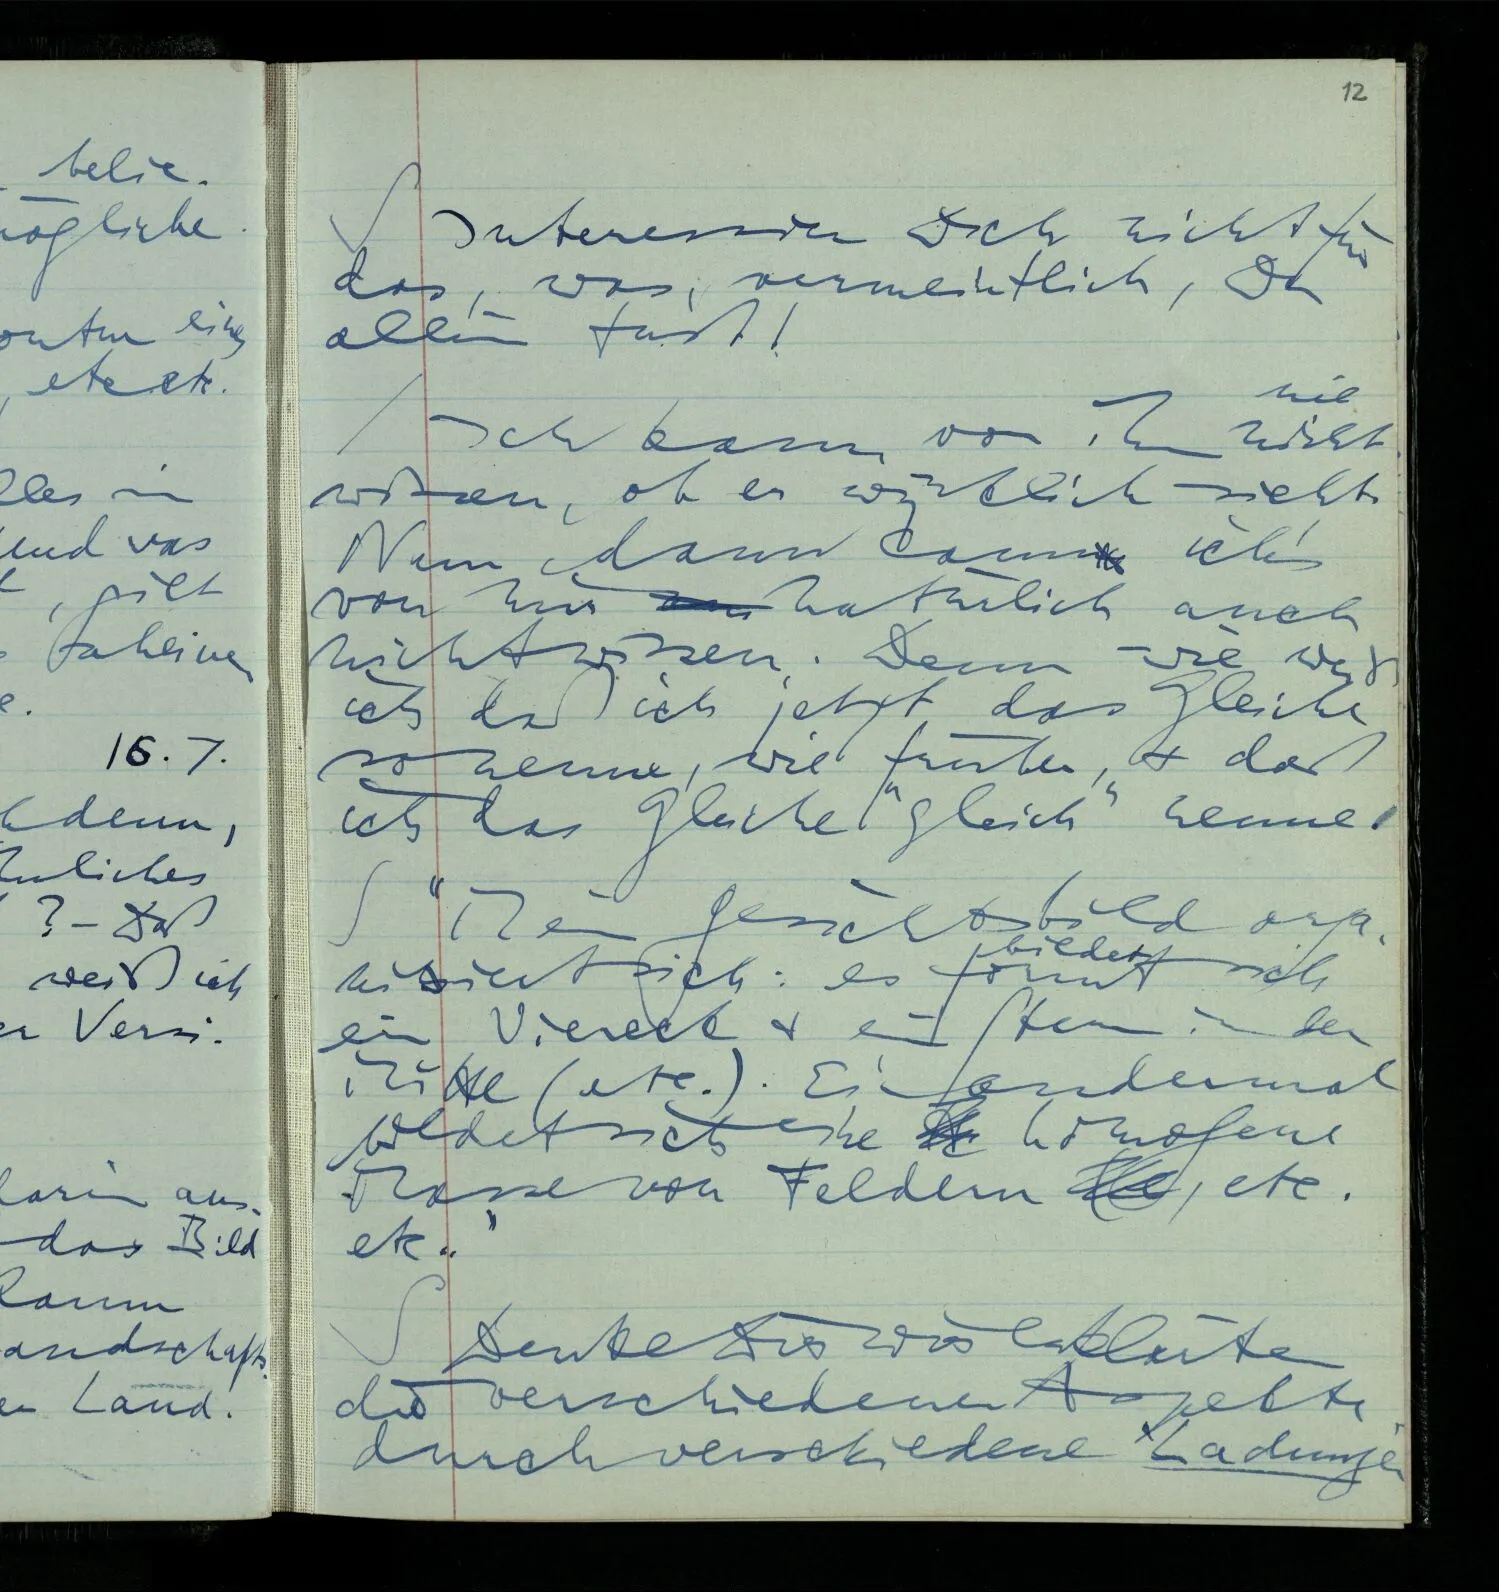 belie.
mögliche
eines
, etc etc.
alles in
und was
t, gilt
Geheimen
e.
16.7.
denn,
hnliches
? – Daß
weiß ich
er Versi.
darin aus.
das Bild
Raum
andschafts
en Land.
12
∫ Interessier Dich nicht für
das, was, vermeintlich, Du
allein hast!
/ Ich kann von ihm nicht nie
wissen, ob er wirklich sieht
Nun dann kann ich's
von mir natürlich auch
nicht wissen. Denn wie weiß
ich daß ich jetzt das Gleiche
so nenne, wie früher, & daß
ich das Gleiche "gleich" nenne!
∫ "Mein Gesichtsbild orga.
nisiert sich: es formt bildet sich
ein Viereck & ein Stern in der
Mitte (etc.). Ein andermal
bildet sich eine homogene
Masse von Feldern, etc.
etc.."
∫ Denke Dir wir erklärten
die verschiedenen Aspekte
durch verschiedene Ladungen